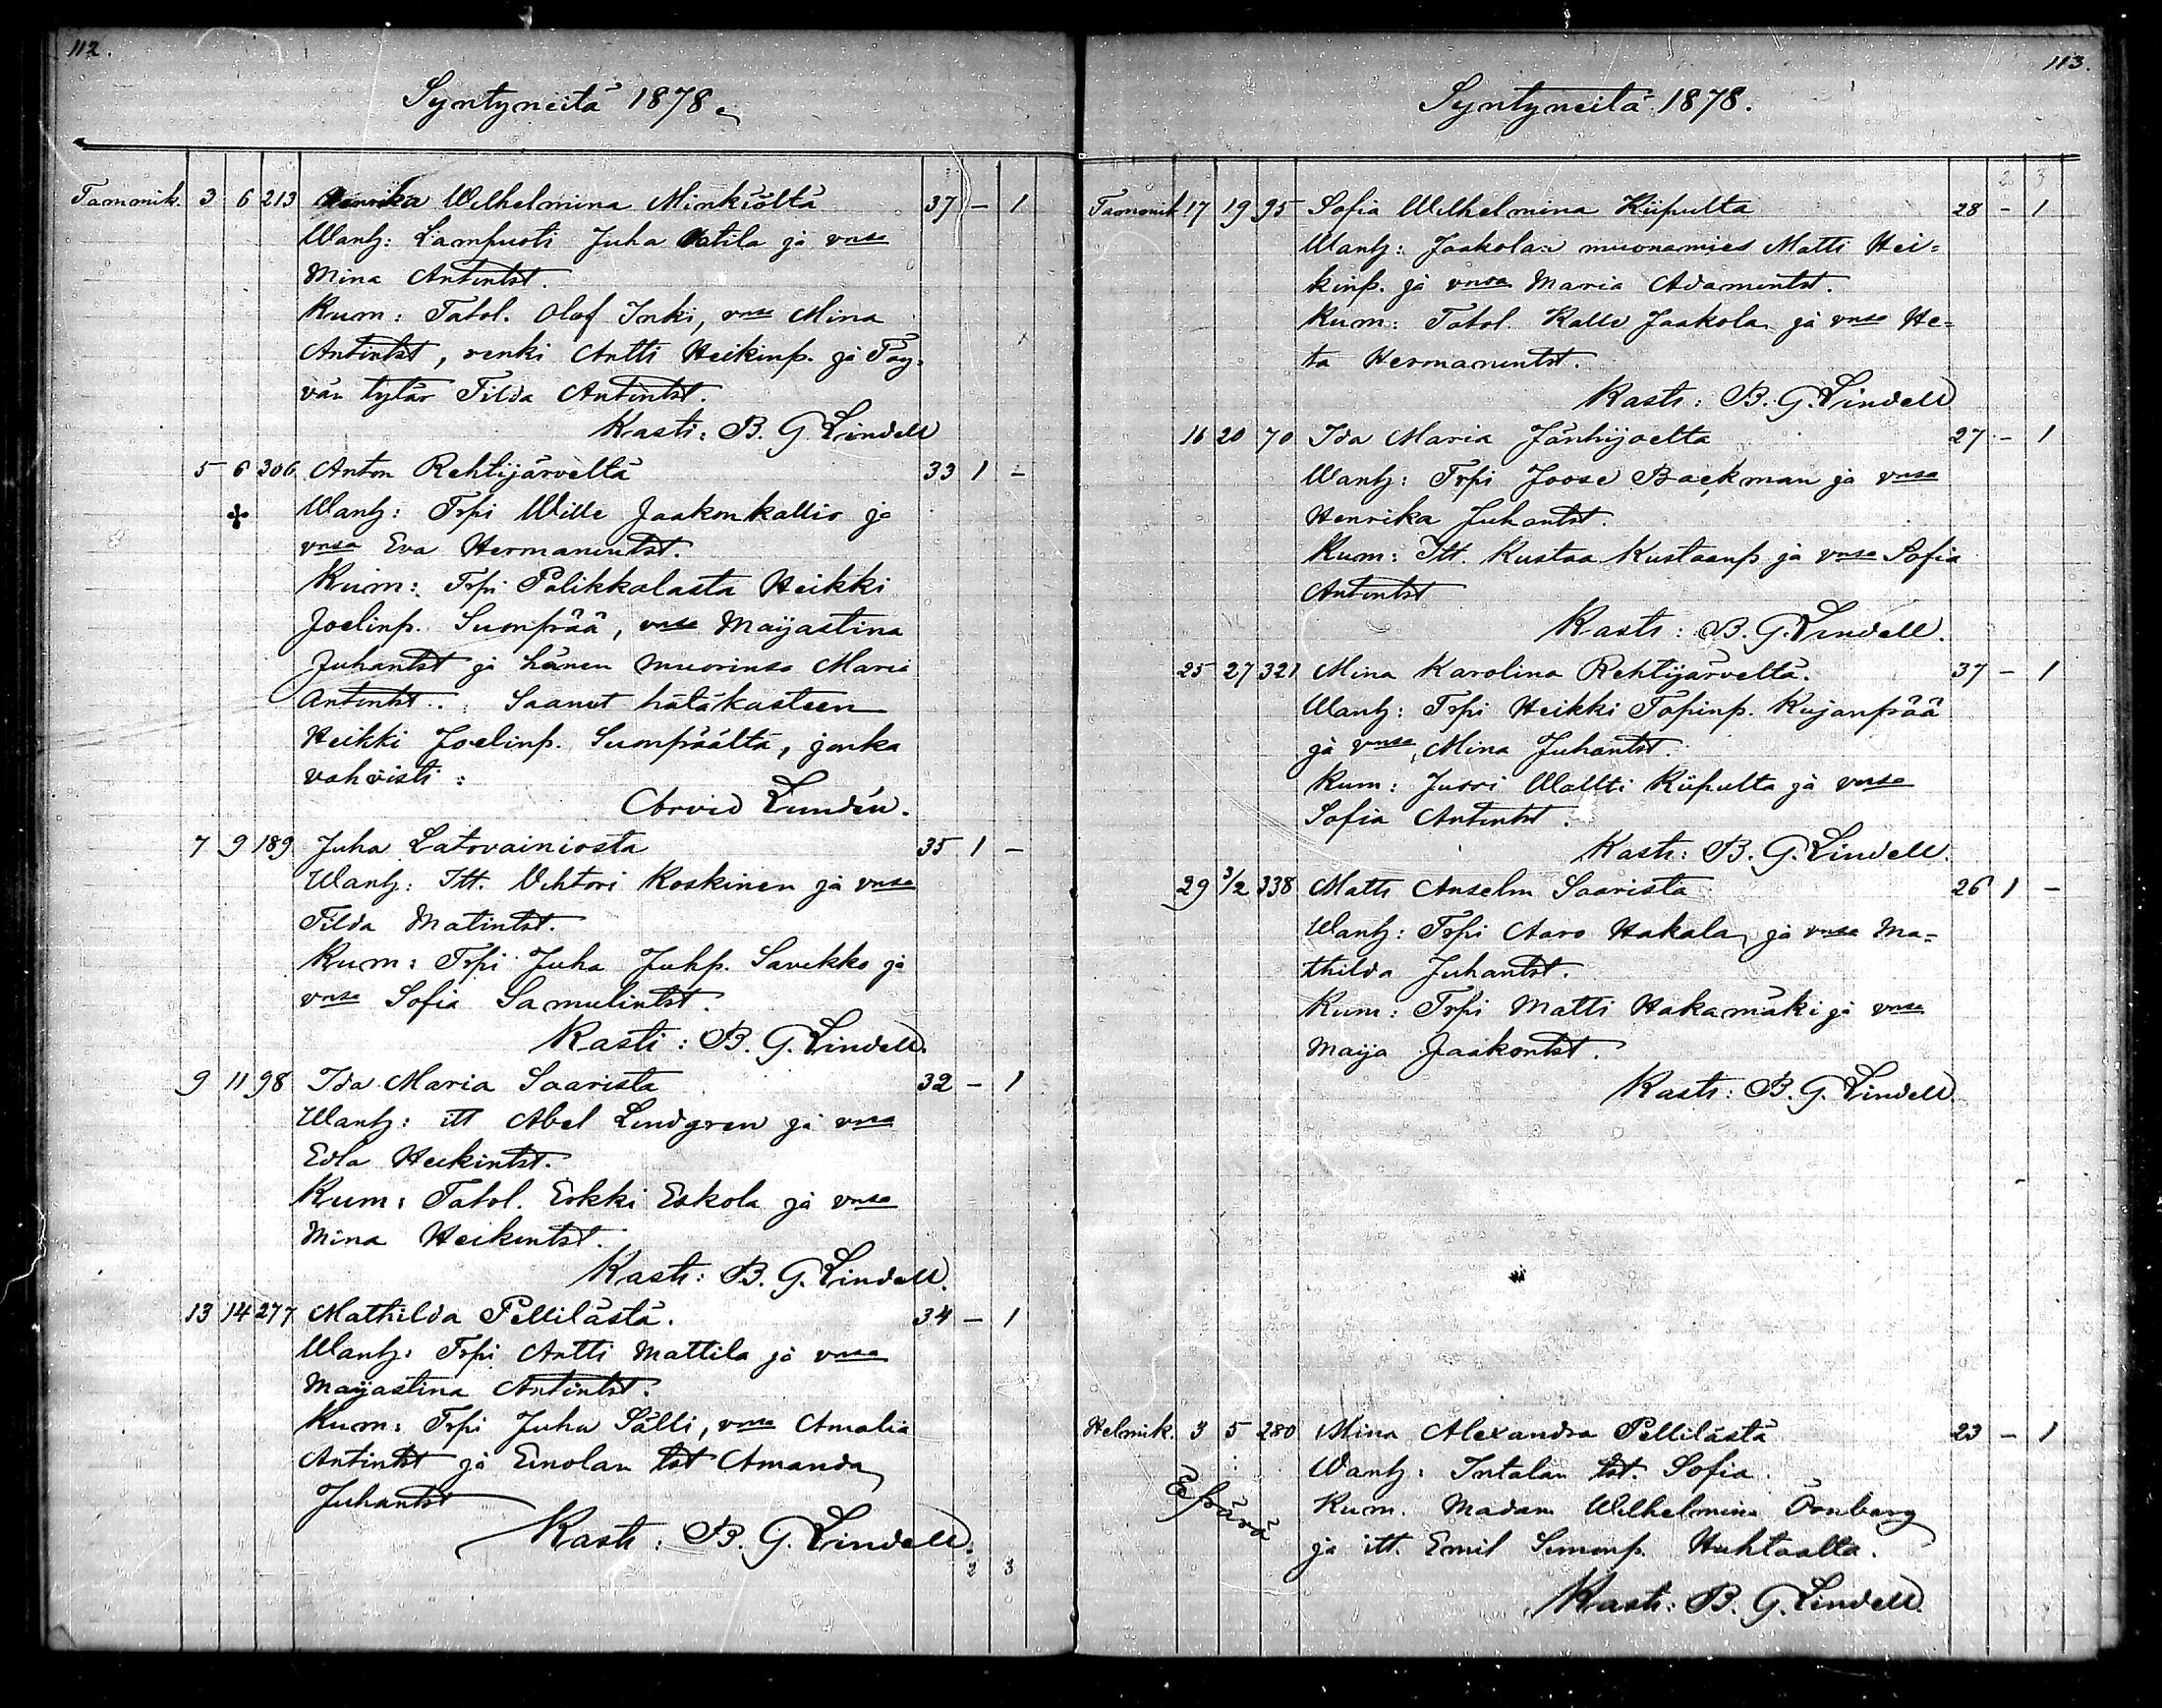 112.
Syntyneitä 1878.
Tammik. 3 6 213 Henrika Wilhelmina Minkiöltä 37 - 1
Wanh: Lampuoti Juha Ratila ja vmsa
Mina Antintst.
Kum: Talol. Olof Inki, vmsa Mina
Antintst, renki Antti Heikinp. ja Töy-
vän tytär Tilda Antintst.
Kasti: B. G. Lindell
5 6 306 Anton Rehtijärveltä 33 1 -
Wanh: Trpi Wille Jaakonkallio ja
vmsa Eva Hermanintst.
Kum: Trpi Palikkalasta Heikki
Joelinp. Suonpää, vmsa Maijastina
Juhantst ja hänen muorinsa Maria
Antintst. Saanut hätäkasteen
Heikki Joelinp. Suonpäältä, jonka
vahvisti:
Arvid Lundén.
7 9 189 Juha Latovainiosta 35 1 -
Wanh: Itt. Vihtori Koskinen ja vmsa
Tilda Matintst.
Kum: Trpi Juha Juhp. Savikko ja
vmsa Sofia Samulintst.
Kasti: B. G. Lindell.
9 11 98 Ida Maria Saarista 32 - 1
Wanh: itt Abel Lindgren ja vmsa
Edla Heikintst.
Kum: Talol. Erkki Eskola ja vmsa
Mina Heikintst.
Kasti: B. G. Lindell.
13 14 277 Mathilda Pellilästä. 34 - 1
Wanh: Trpi Antti Mattila ja vmsa
Maijastina Antintst.
Kum: Trpi Juha Sälli, vmsa Amalia
Antintst ja Einolan tst Amanda
Juhantst
Kasti: B. G. Lindell.
2 3
113.
Syntyneitä 1878.
2 3
Tammik 17 19 95 Sofia Wilhelmina Kiipulta 28 - 1
Wanh: Jaakolan muonamies Matti Hei-
kinp. ja vmsa Maria Adamintst.
Kum: Talol. Kalle Jaakola ja vmsa He-
ta Hermanintst.
Kasti: B. G. Lindell
16 20 70 Ida Maria Jänhijoelta 27 - 1
Wanh: Trpi Joose Backman ja vmsa
Henrika Juhantst.
Kum: Itt. Kustaa Kustaanp ja vmsa Sofia
Antintst
Kasti: B. G. Lindell.
25 27 321 Mina Karolina Rehtijärveltä. 37 - 1
Wanh: Trpi Heikki Topinp. Kujanpää
ja vmsa Mina Juhantst.
Kum: Jussi Wallti Kiipulta ja vmsa
Sofia Antintst.
Kasti: B. G. Lindell.
29 3/2 338 Matti Anselm Saarista 26 1 -
Wanh: Trpi Aaro Hakala ja vmsa Ma-
thilda Juhantst.
Kum: Trpi Matti Hakamäki ja vmsa
Maija Jaakontst.
Kasti: B. G. Lindell.
Helmik. 3 5 280 Mina Alexandra Pellilästä 23 - 1
Wanh: Intalan tst. Sofia.
Epärä
Kum. Madam Wilhelmina Örnberg
ja itt. Emil Simonp. Huhtaalta.
Kasti: B. G. Lindell.